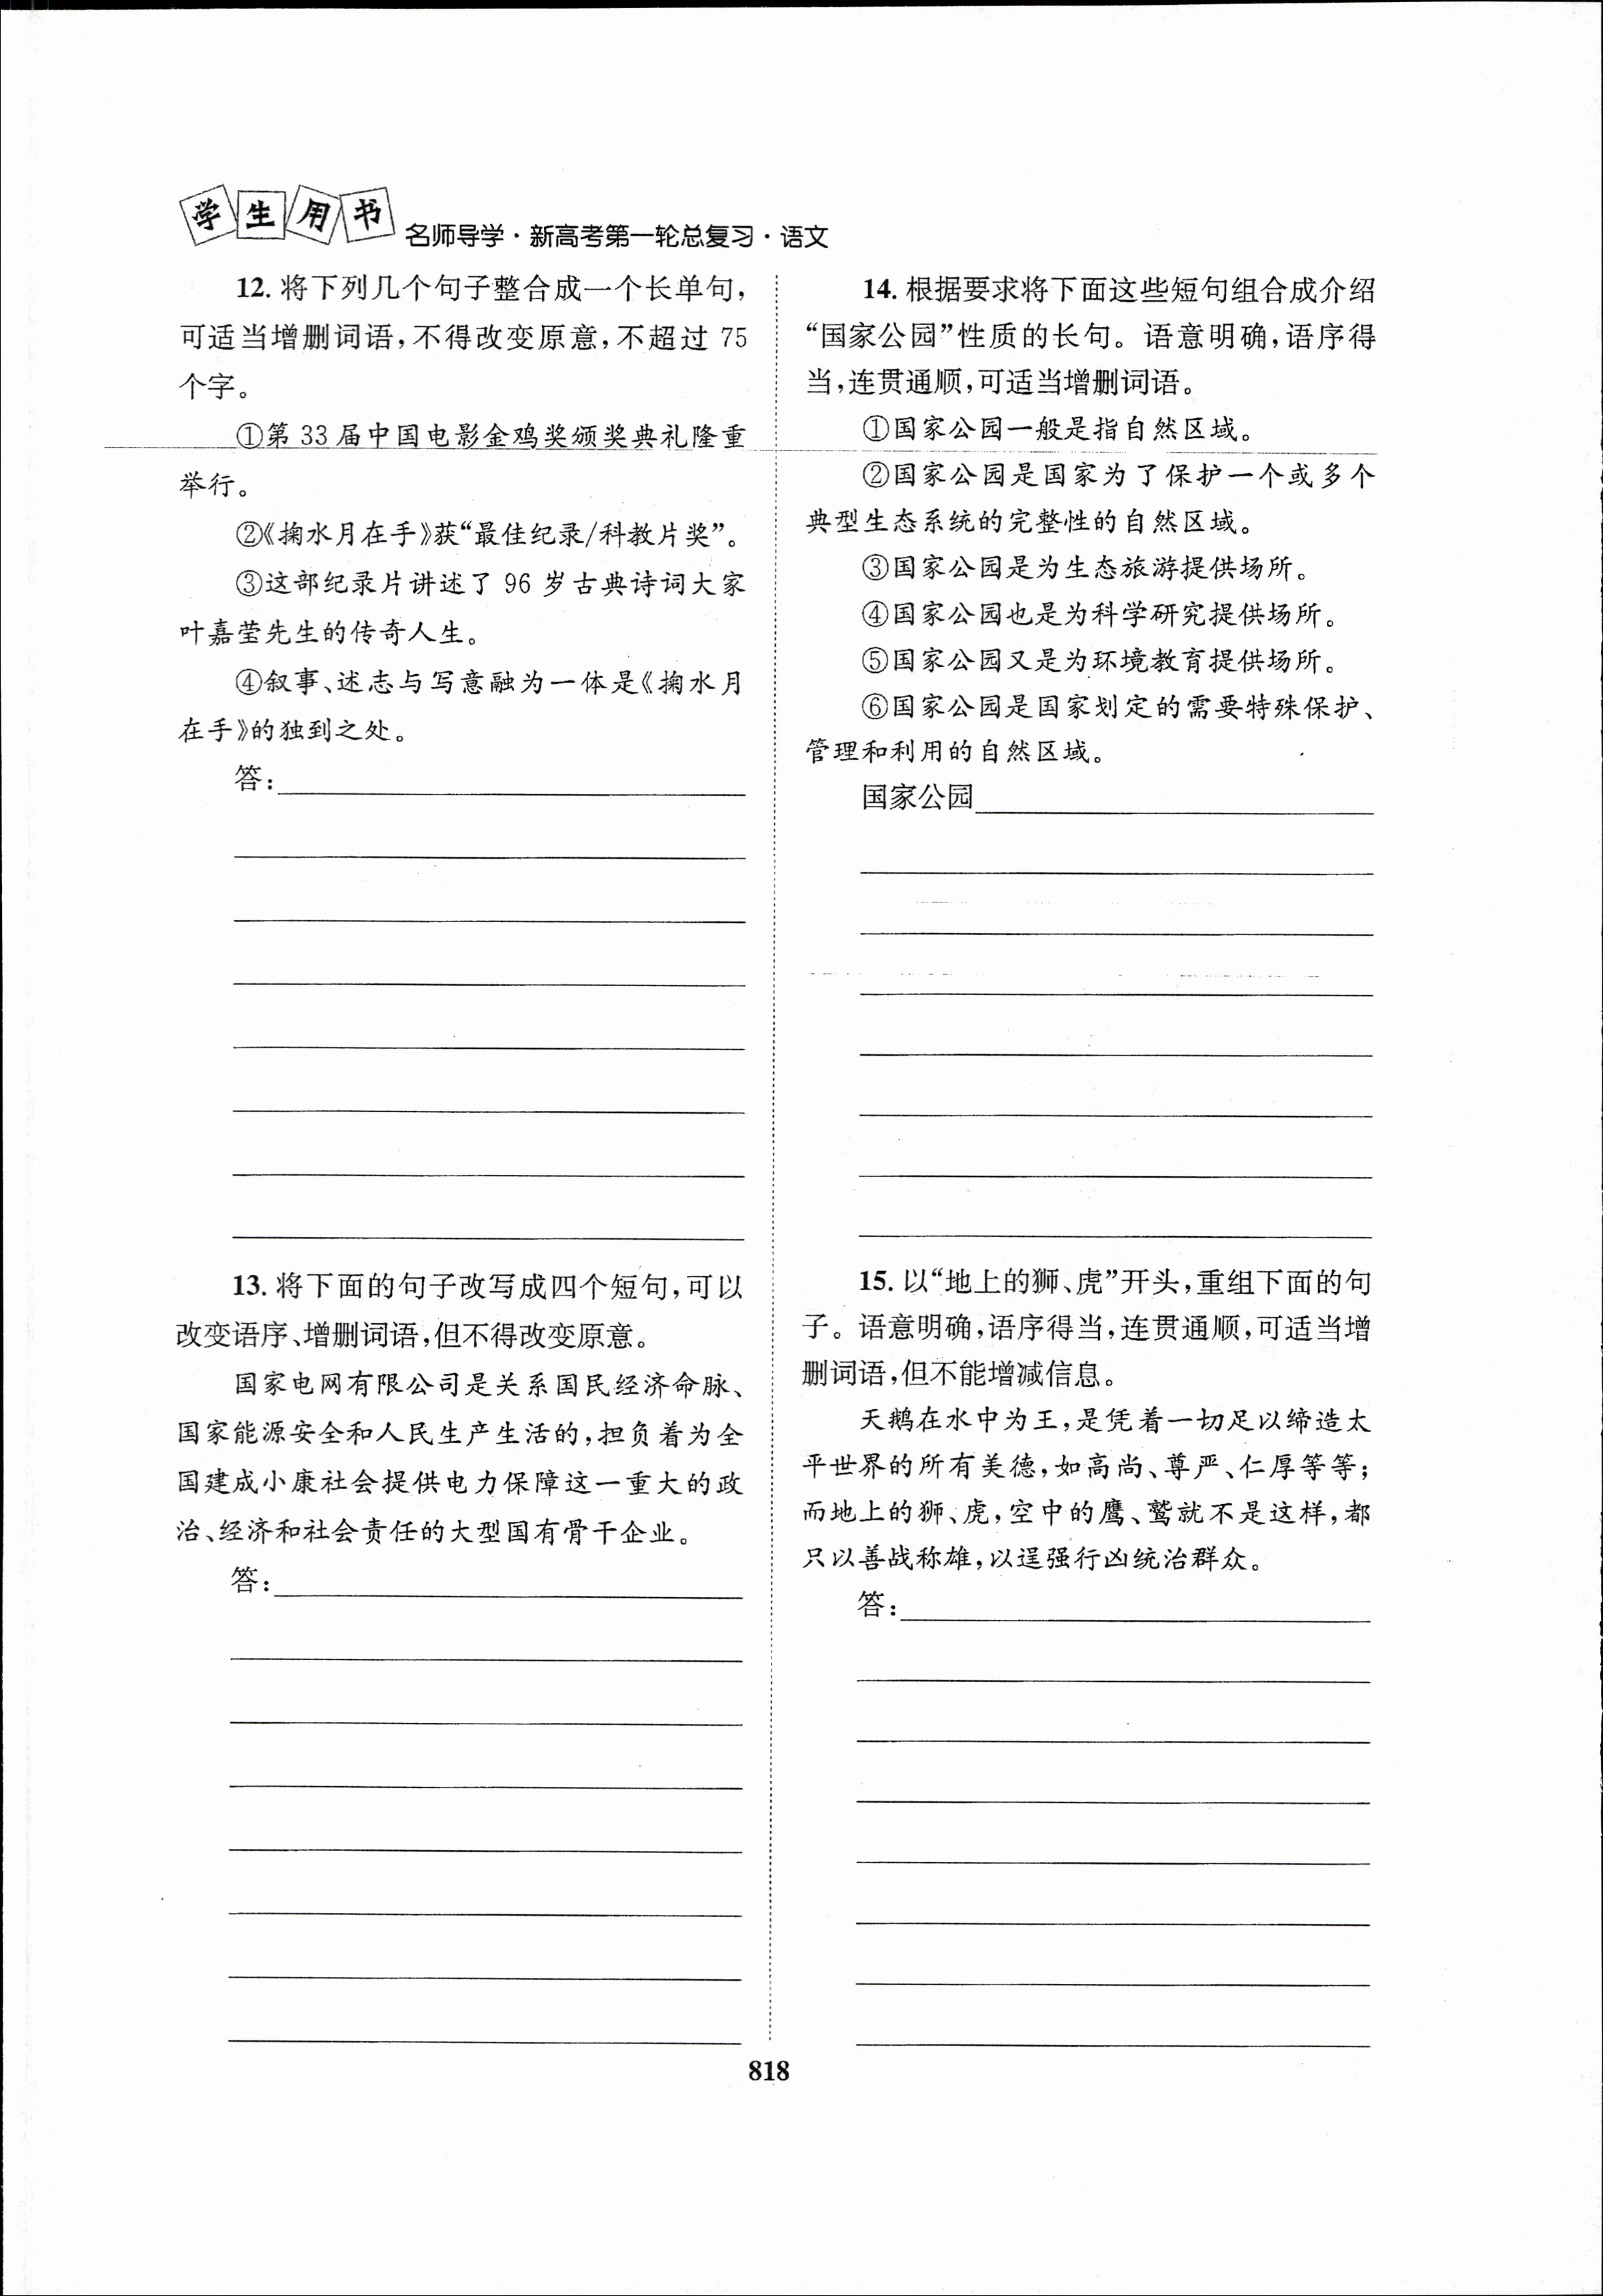 学生用书
名师导学·新高考第一轮总复习·语文
12. 将下列几个句子整合成一个长单句,
可适当增删词语,不得改变原意,不超过 75
个字。
①第 33 届中国电影金鸡奖颁奖典礼隆重
举行。
②《掬水月在手》获“最佳纪录/科教片奖”。
③这部纪录片讲述了 96 岁古典诗词大家
叶嘉莹先生的传奇人生。
④叙事、述志与写意融为一体是《掬水月
在手》的独到之处。
答:
13. 将下面的句子改写成四个短句,可以
改变语序、增删词语,但不得改变原意。
国家电网有限公司是关系国民经济命脉、
国家能源安全和人民生产生活的,担负着为全
国建成小康社会提供电力保障这一重大的政
治、经济和社会责任的大型国有骨干企业。
答:
14. 根据要求将下面这些短句组合成介绍
“国家公园”性质的长句。语意明确,语序得
当,连贯通顺,可适当增删词语。
①国家公园一般是指自然区域。
②国家公园是国家为了保护一个或多个
典型生态系统的完整性的自然区域。
③国家公园是为生态旅游提供场所。
④国家公园也是为科学研究提供场所。
⑤国家公园又是为环境教育提供场所。
⑥国家公园是国家划定的需要特殊保护、
管理和利用的自然区域。
国家公园
15. 以“地上的狮、虎”开头,重组下面的句
子。语意明确,语序得当,连贯通顺,可适当增
删词语,但不能增减信息。
天鹅在水中为王,是凭着一切足以缔造太
平世界的所有美德,如高尚、尊严、仁厚等等;
而地上的狮、虎,空中的鹰、鹫就不是这样,都
只以善战称雄,以逞强行凶统治群众。
答:
818